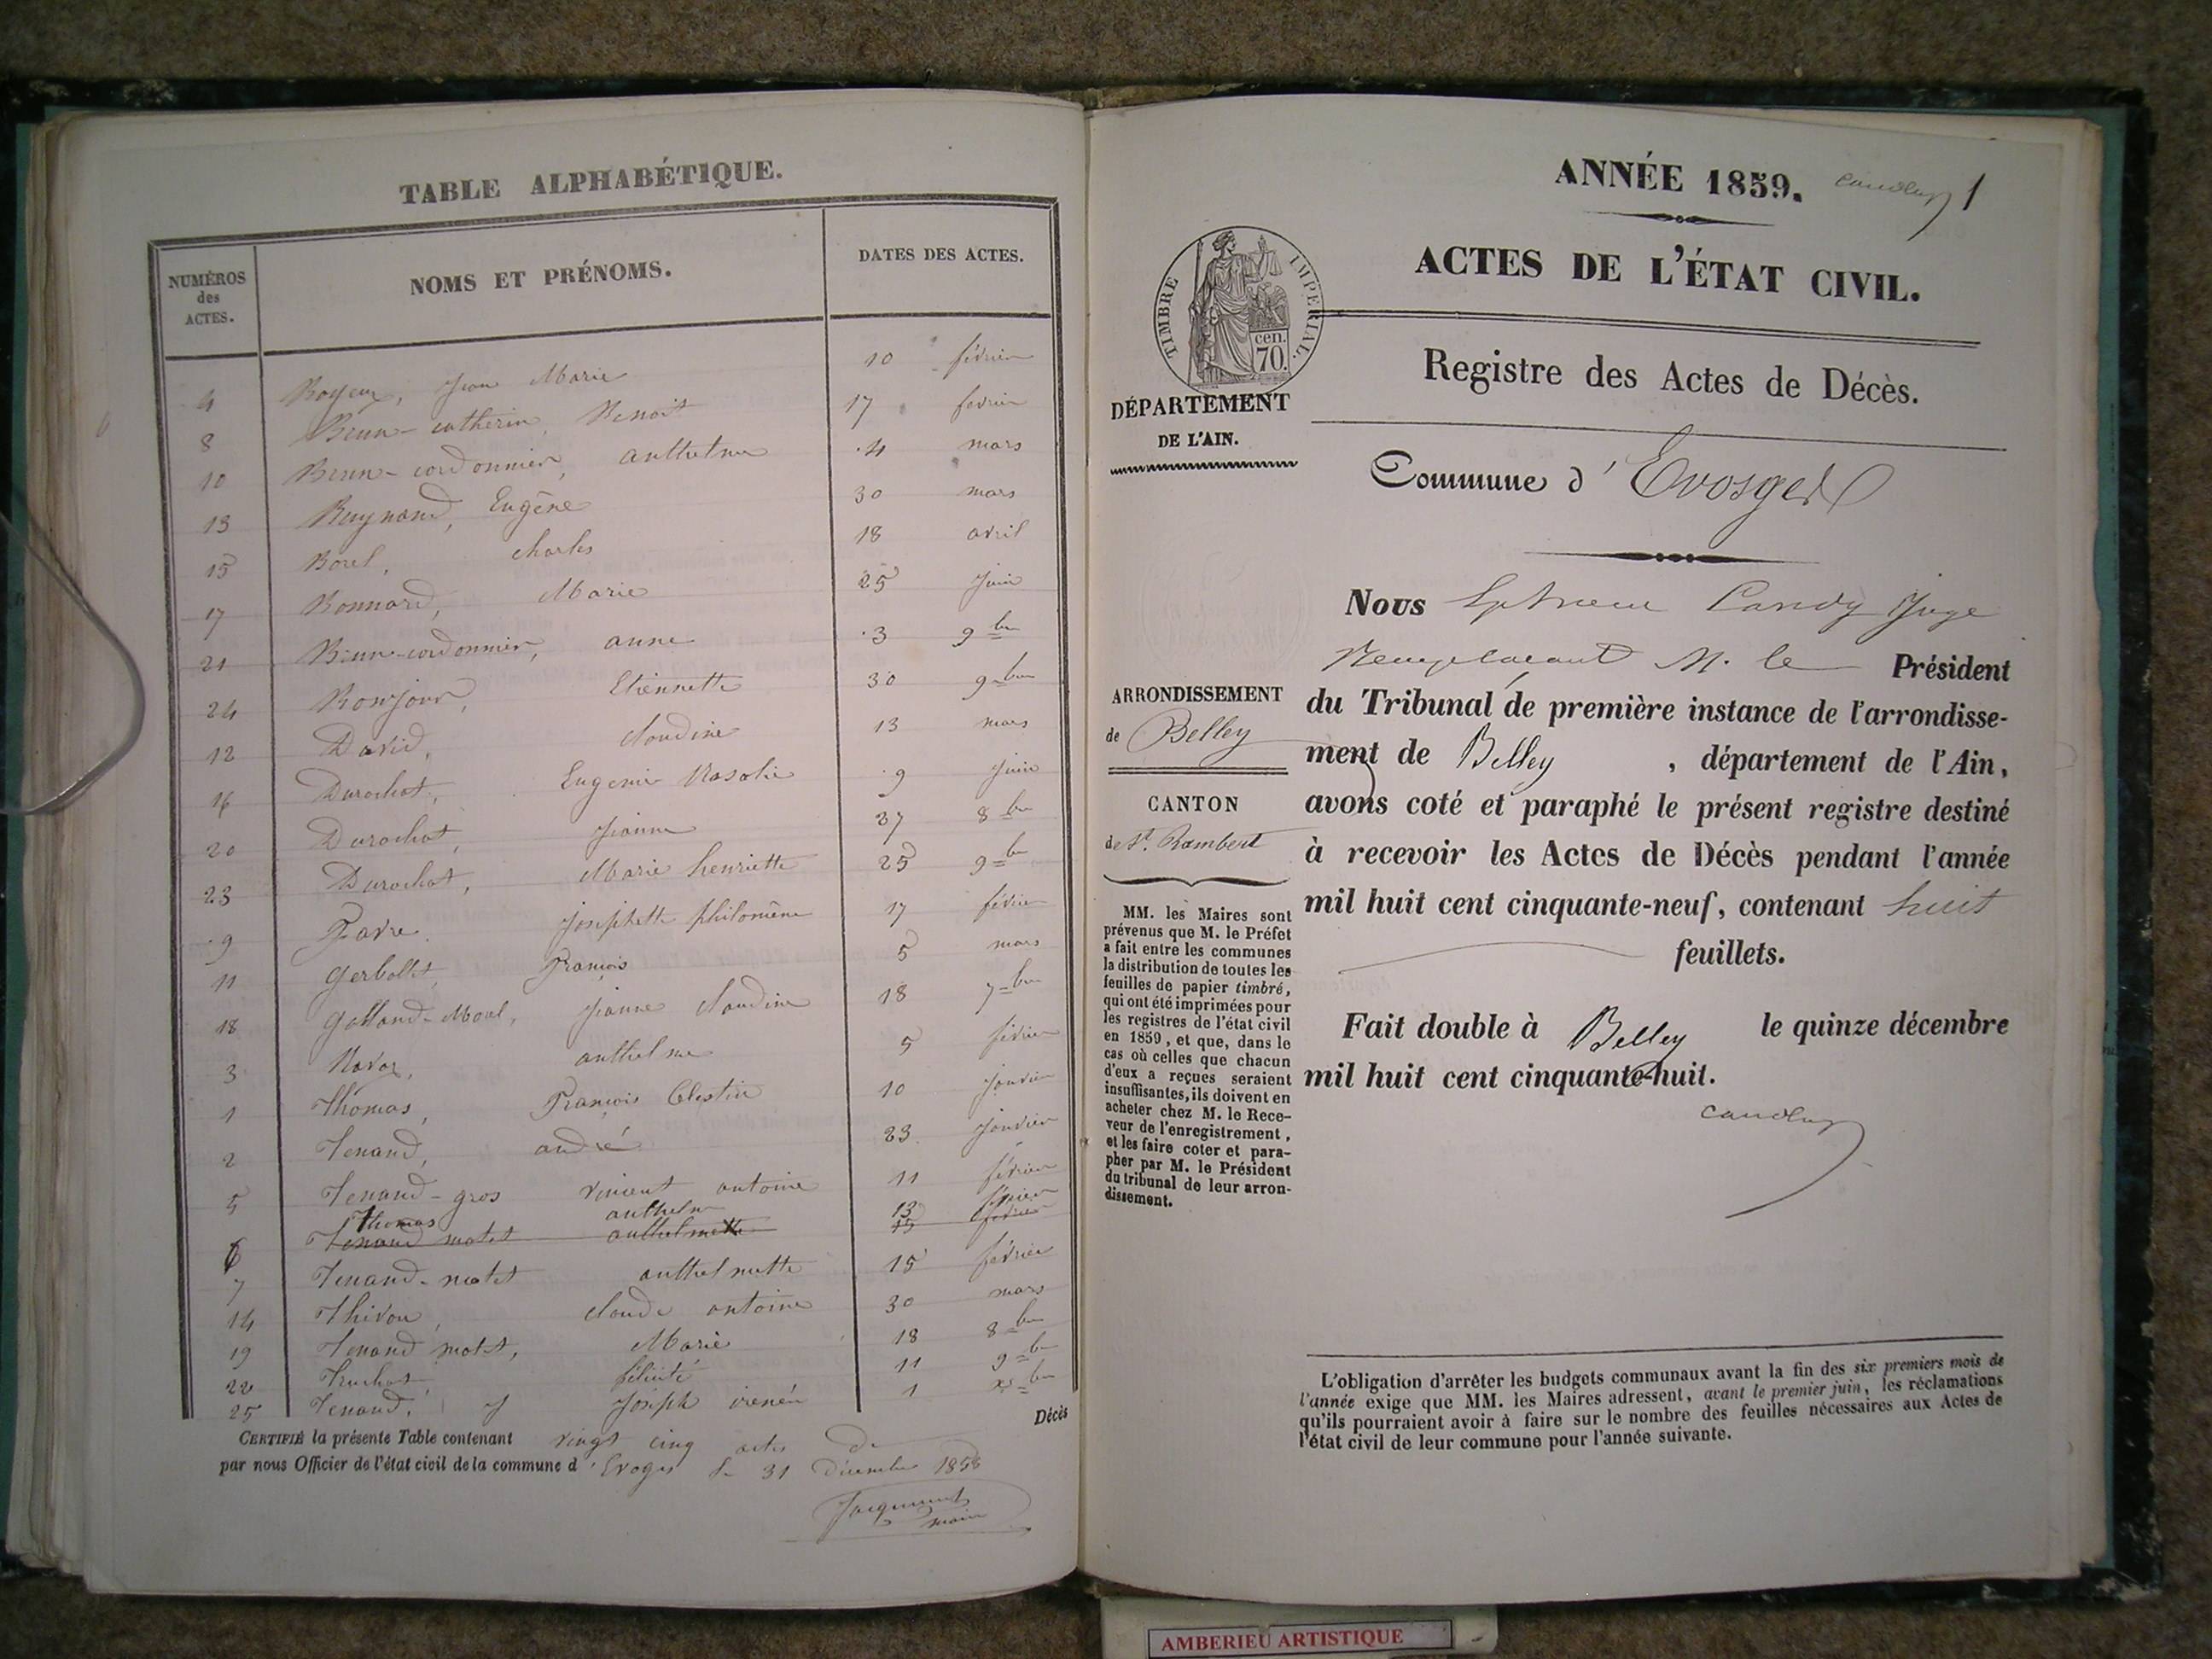 TABLE ALPHABÉTIQUE.
NUMÉROS des ACTES. NOMS ET PRÉNOMS. DATES DES ACTES.
4 Jean Marie 10 février
8 Brun-catherin, Benoit 17 février
10 Brun-cordonnier, anthelme 4 mars
13 Eugène 30 mars
15 Borel, charles 18 avril
17 Bonnard, Marie 25 Juin
21 Brun-cordonnier, anne 3 9bre
24 Bonjour, Etiennette 30 9bre
12 David, claudine 13 mars
16 Durochat, Eugenie Rosalie 9 Juin
20 Durochat, Jeanne 27 8bre
23 Durochat, Marie henriette 25 9bre
9 Favre Josephette philomène 17 février
11 gerbollet, François 5 mars
18 golland-Moul, Jeanne claudine 18 7bre
3 anthelme 5 février
1 Thomas, François Célestin 10 Janvier
2 Tenand, andré 23 Janvier
5 Tenand-gros vincent antoine 11 février
Thomas anthelme 13 février
6 Tenand motet anthelmette 15 février
7 Tenand-motet anthelmette 15 février
14 Thivon, claude antoine 30 mars
19 Tenand motet, Marie 18 8bre
22 Truchot, félicité 11 9bre
25 Tenand, Joseph irenée 1 xbre
CERTIFIÉ la présente Table contenant vingt cinq actes de Décès
par nous Officier de l'état civil de la commune d'Evoges le 31 Décembre 1858
Jacquemet
maire
ANNÉE 1859. 1
ACTES DE L'ÉTAT CIVIL.
TIMBRE IMPÉRIAL.
cen.
70.
Registre des Actes de Décès.
DÉPARTEMENT
DE L'AIN.
Commune d'Evosges
Nous Candy Juge
Remplaçant M. le Président
ARRONDISSEMENT
de Belley
du Tribunal de première instance de l'arrondisse-
ment de Belley, département de l'Ain,
avons coté et paraphé le présent registre destiné
à recevoir les Actes de Décès pendant l'année
mil huit cent cinquante-neuf, contenant huit
feuillets.
CANTON
de St. Rambert
MM. les Maires sont
prévenus que M. le Préfet
a fait entre les communes
la distribution de toutes les
feuilles de papier timbré,
qui ont été imprimées pour
les registres de l'état civil
en 1859, et que, dans le
cas où celles que chacun
d'eux a reçues seraient
insuffisantes, ils doivent en
acheter chez M. le Rece-
veur de l'enregistrement,
et les faire coter et para-
pher par M. le Président
du tribunal de leur arron-
dissement.
Fait double à Belley le quinze décembre
mil huit cent cinquante-huit.
L'obligation d'arrêter les budgets communaux avant la fin des six premiers mois de
l'année exige que MM. les Maires adressent, avant le premier juin, les réclamations
qu'ils pourraient avoir à faire sur le nombre des feuilles nécessaires aux Actes de
l'état civil de leur commune pour l'année suivante.
AMBERIEU ARTISTIQUE